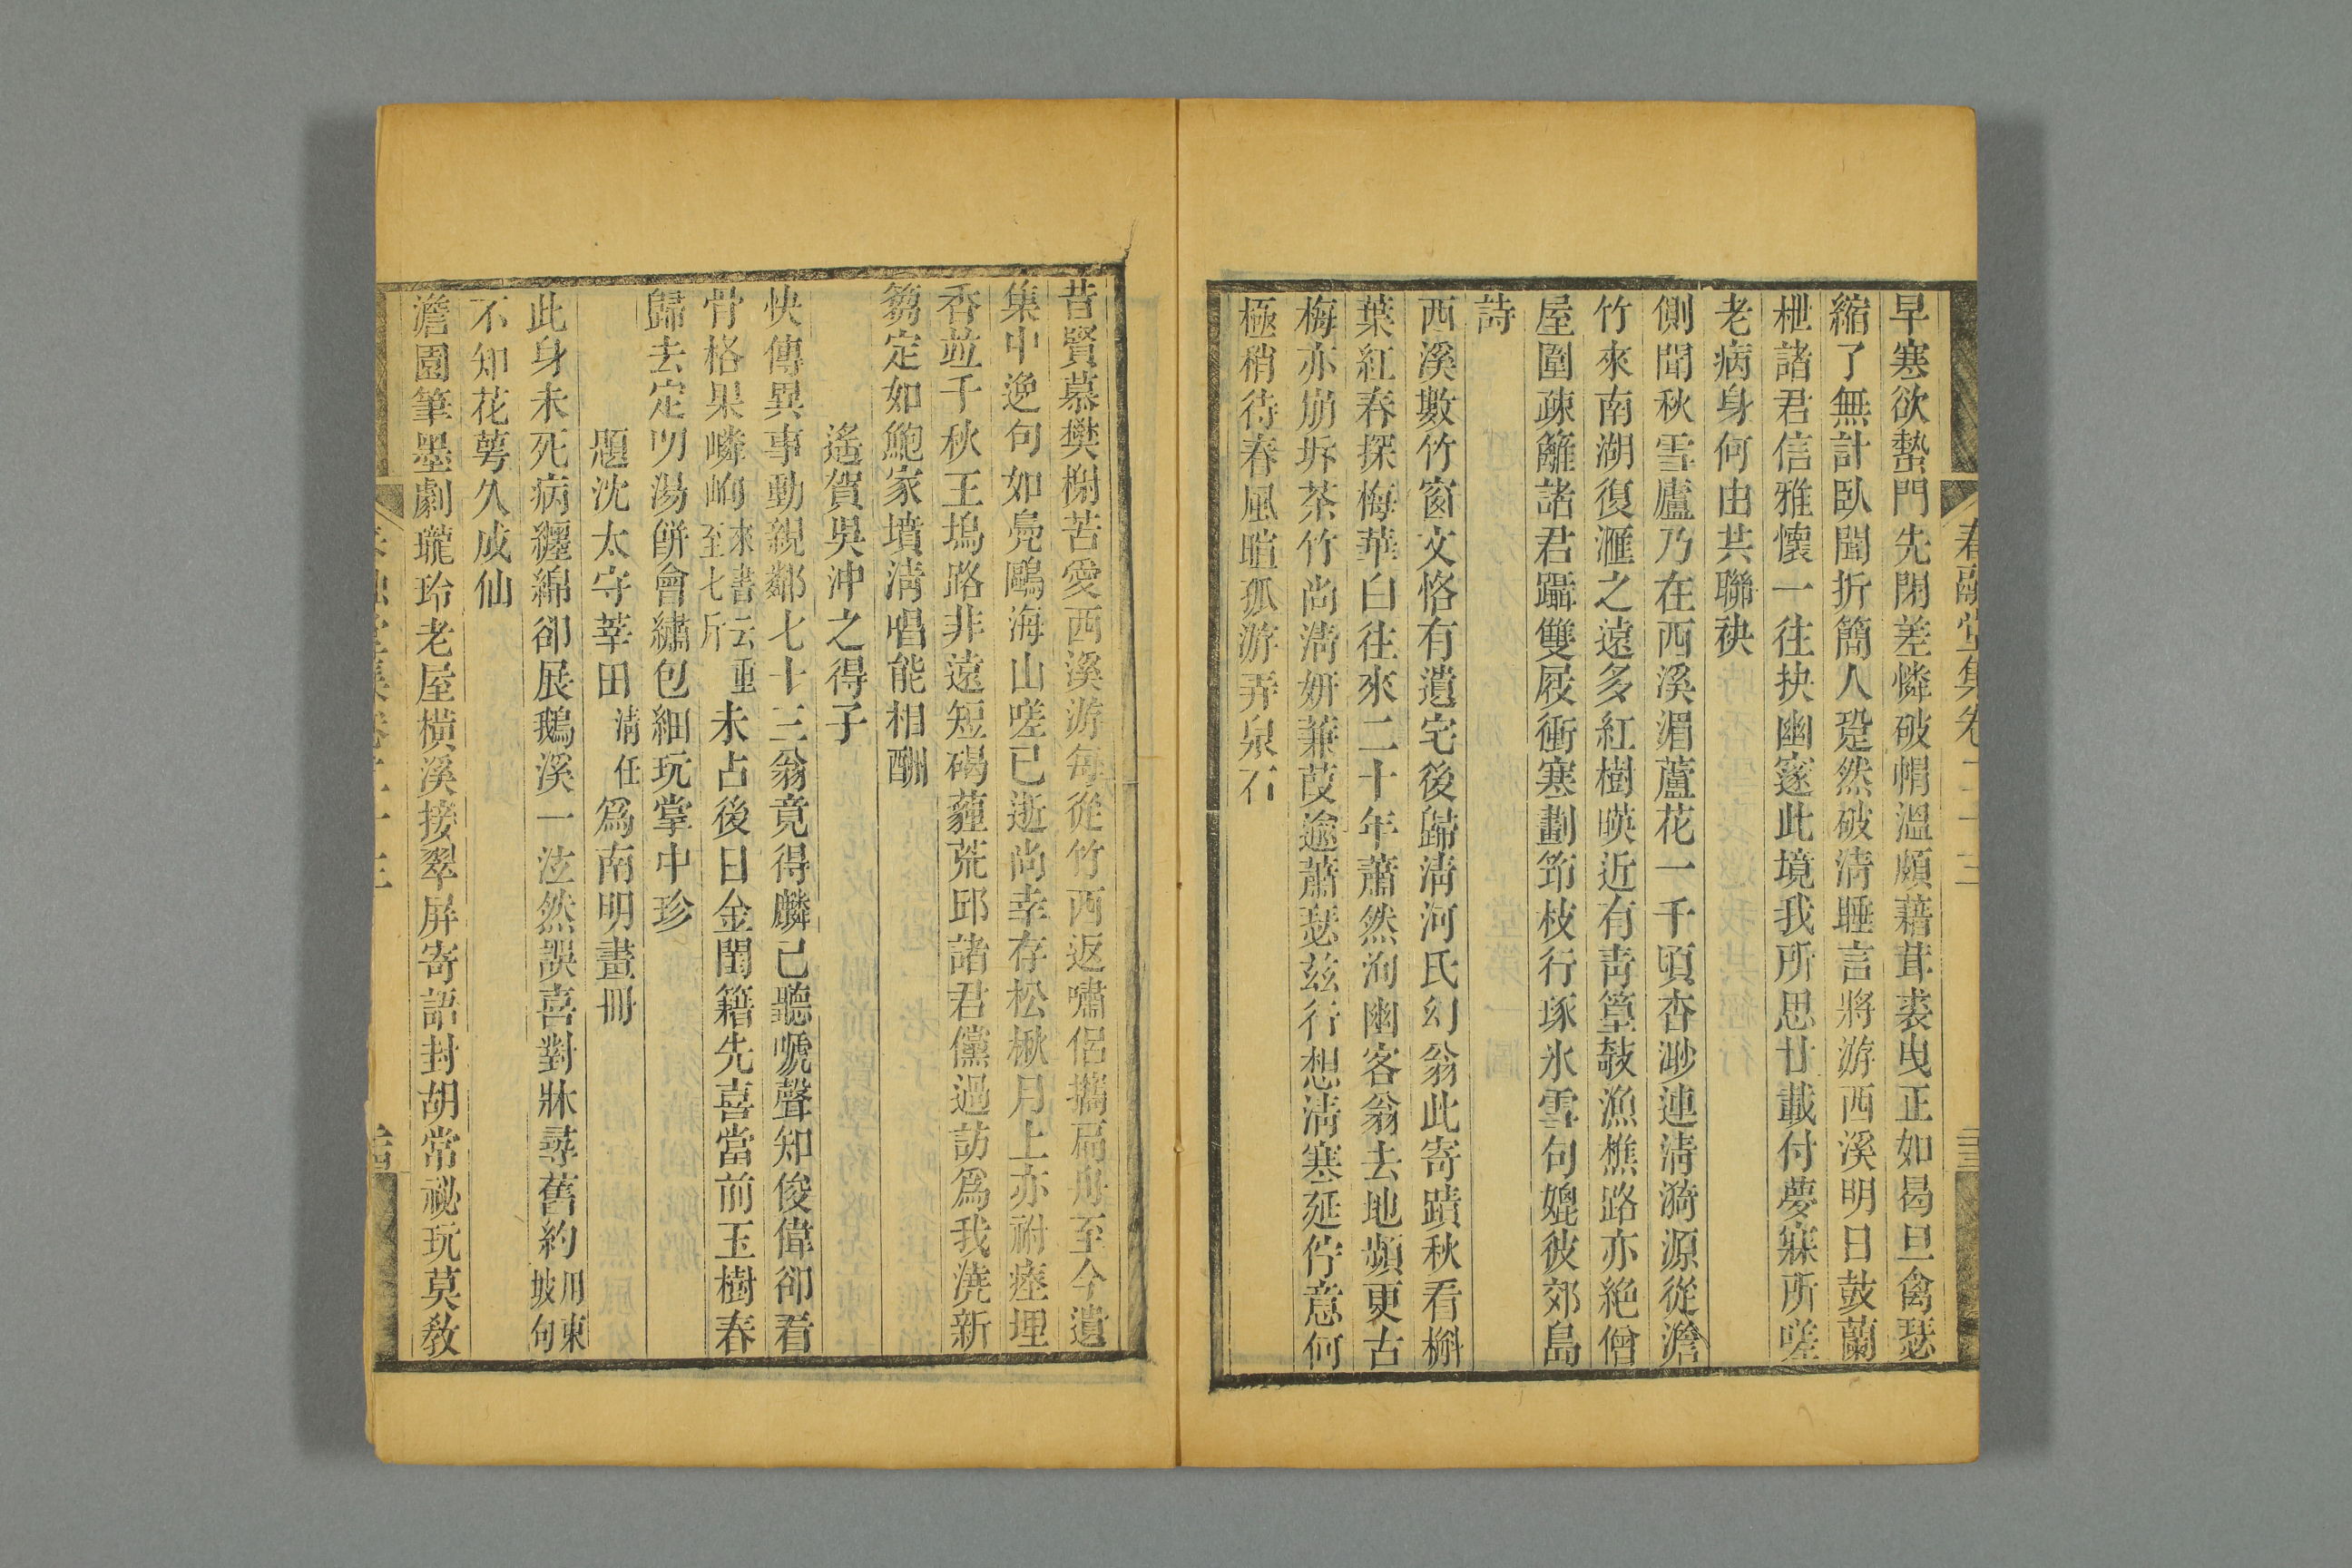 春融堂集卷二十三
早寒欲蟄門先閉差憐破帽溫頗藉茸裘曳正如曷旦禽瑟
縮了無計臥聞折簡人跫然破清睡言將游西溪明日鼓蘭
枻諸君信雅懷一往抉幽邃此境我所思廿載付夢寐所嗟
老病身何由共聯袂
側聞秋雪廬乃在西溪湄蘆花一千頃杳渺連清漪源從澹
竹來南湖復滙之遠多紅樹暎近有青篁攲漁樵路亦絶僧
屋圍疎籬諸君躡雙屐衝寒劃笻枝行琢氷雪句媲彼郊島
詩
西溪數竹窗文恪有遺宅後歸清河氏幻翁此寄蹟秋看槲
葉紅春探梅華白往來二十年蕭然洵幽客翁去地頻更古
梅亦崩坼茶竹尚清妍蒹葭逾蕭瑟茲行想清寒延佇意何
極稍待春風暄孤游弄泉石
昔賢慕樊榭苦愛西溪游每從竹西返嘯侶攜扁舟至今遺
集中逸句如鳧鷗海山嗟已逝尚幸存松楸月上亦祔瘞埋
香竝千秋王塢路非遠短碣薶荒邱諸君儻過訪爲我澆新
篘定如鮑家墳清唱能相酬
遙賀吳沖之得子
快傳異事動親鄰七十三翁竟得麟已聽嗁聲知俊偉卻看
骨格果嶙峋來書云重至七斤未占後日金閨籍先喜當前玉樹春
歸去定叨湯餅會繡包細玩掌中珍
題沈太守莘田清任爲南明畫冊
此身未死病纏綿卻展鵝溪一泫然誤喜對牀尋舊約用東坡句
不知花萼久成仙
澹園筆墨劇瓏玲老屋橫溪接翠屏寄語封胡常祕玩莫敎